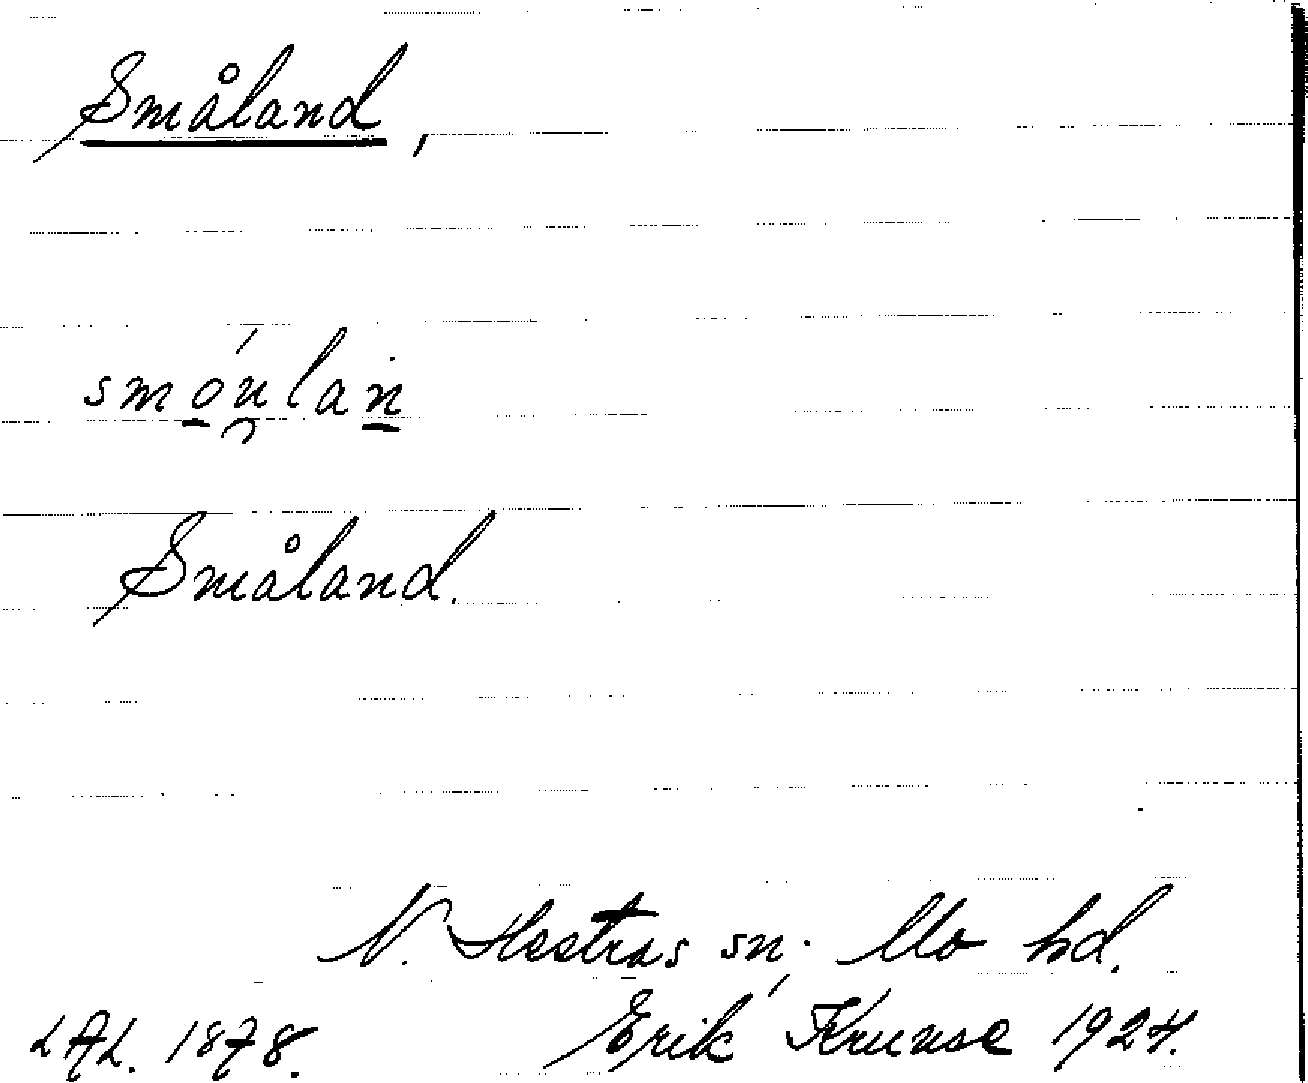 Småland,
smóu̯lan
Småland.
N. Hestras sn; Mo hd.
LAL. 1878. Erik Kruuse 1924.